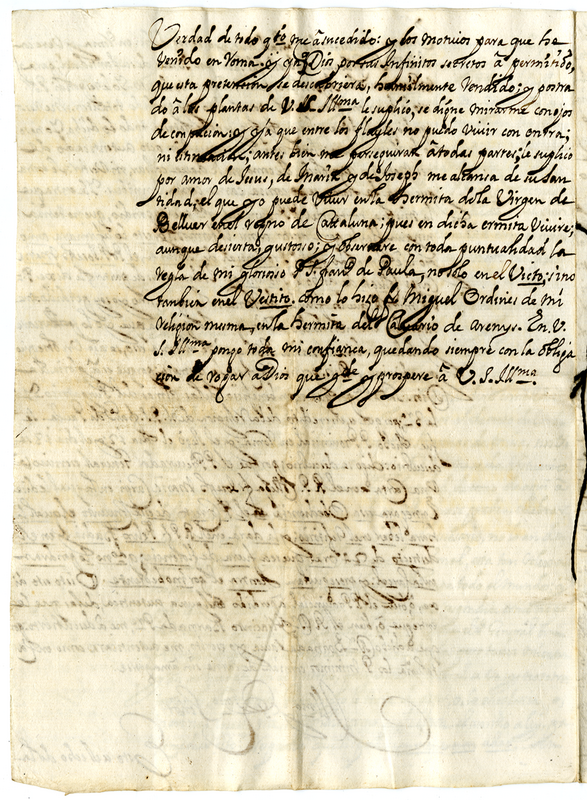 Verdad de todo qto me à sucedido: y los motivos para que he
Venido en Roma. y ya q Dios por sus Infinitos secretos à permitido,
que esta pretencion se descubriera, humilmente Rendido; y postra
do à las plantas de V. S. Illma le suplico, se digne mirarme con ojos
de conpasion: y ya que entre los flayles no puedo viuir con entra;
ni
antes bien me perseguiran à todas partes; le suplico
por amor de Jesus, de Maria, y de Joseph me alcansa de su San
tidad, el que yo puede viuir en la hermita de la Virgen de
Bellver en el regno de Cattaluna; pues en dicha ermita Viuire;
aunque desierta; gustoso; y observare con toda puntualidad la
regla de mi glorioso P. S. Franco de Paula, no solo en el Victo; sino
tanbien en el Vestito. como lo hizo fr Miguel Ordines de mi
religion mesma, en la hermita del Caluario de Arenys. En V.
S. Illma pongo toda mi confiança, quedando siempre con la obliga
cion de rogar à Dios que gde y prospere à V. S. Illma.